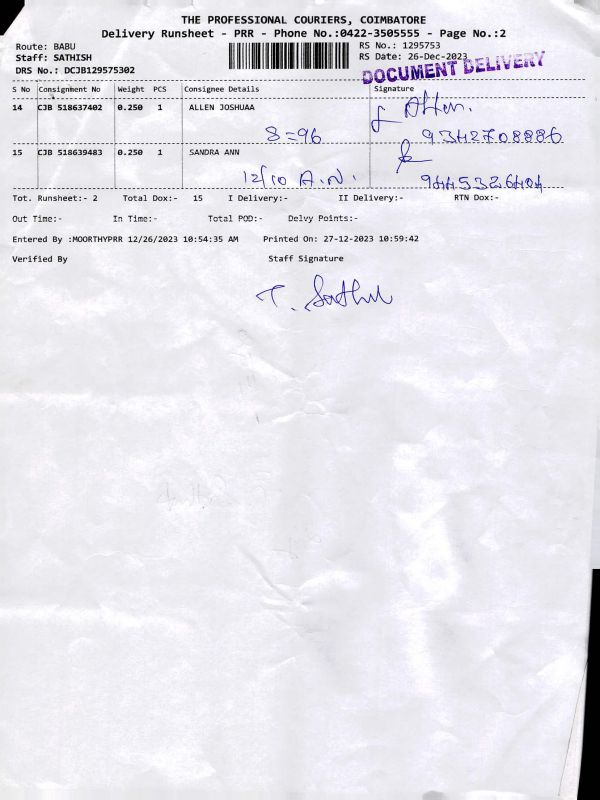 THE PROFESSIONAL COURIERS, COIMBATORE
Delivery Runsheet - PRR - Phone No.:0422-3505555 - Page No.:2
Route: BABU
RS No.: 1295753
Staff: SATHISH
RS Date: 26-Dec-2023
DRS No.: DCJB129575302
DOCUMENT DELIVERY
S No Consignment No Weight PCS Consignee Details Signature
14 CJB 518637402 0.250 1 ALLEN JOSHUAA
8=96 9342708886
15 CJB 518639483 0.250 1 SANDRA ANN
12/10 A.N. 9445326404
Tot. Runsheet:- 2 Total Dox:- 15 I Delivery:- II Delivery:- RTN Dox:-
Out Time:- In Time:- Total POD:- Delvy Points:-
Entered By :MOORTHYPRR 12/26/2023 10:54:35 AM Printed On: 27-12-2023 10:59:42
Verified By Staff Signature
T. Sathi